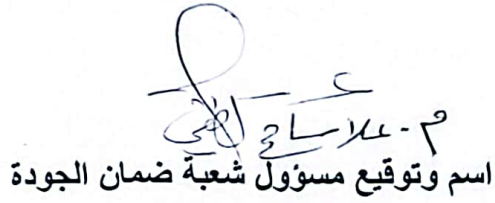 م. علا سامي
اسم وتوقيع مسؤول شعبة ضمان الجودة